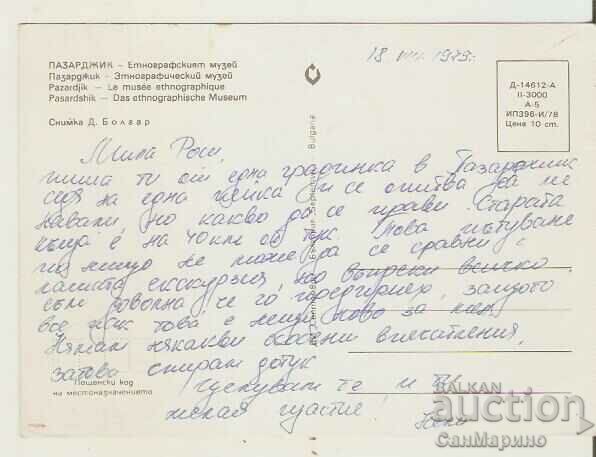 18. VIII. 1979.
ПАЗАРДЖИК – Етнографският музей
Пазарджик – Этнографический музей
Pazardjik – Le musée ethnographique
Pasardshik – Das ethnographische Museum
Снимка Д. Болгар
Д-14612-А
II-3000
А-5
ИП396-И/78
Цена 10 ст.
Bulgaria
Мила Роси,
пиша ти от една градинка в Пазарджик
седя на една пейка и се опитва да ме
навали, но какво да се прави. Старата
къща е на 40 км от тук. Това пътуване
ни нищо не може да се сравни с
нашата екскурзия, но въпреки всичко
съм доволна, че го предприех, защото
все пак това е нещо ново за мен.
Нямам някакви особени впечатления,
затова спирам дотук
целувам те и ти
желая щастие!
Пощенски код
на местоназначението
BALKAN
auction
СанМарино